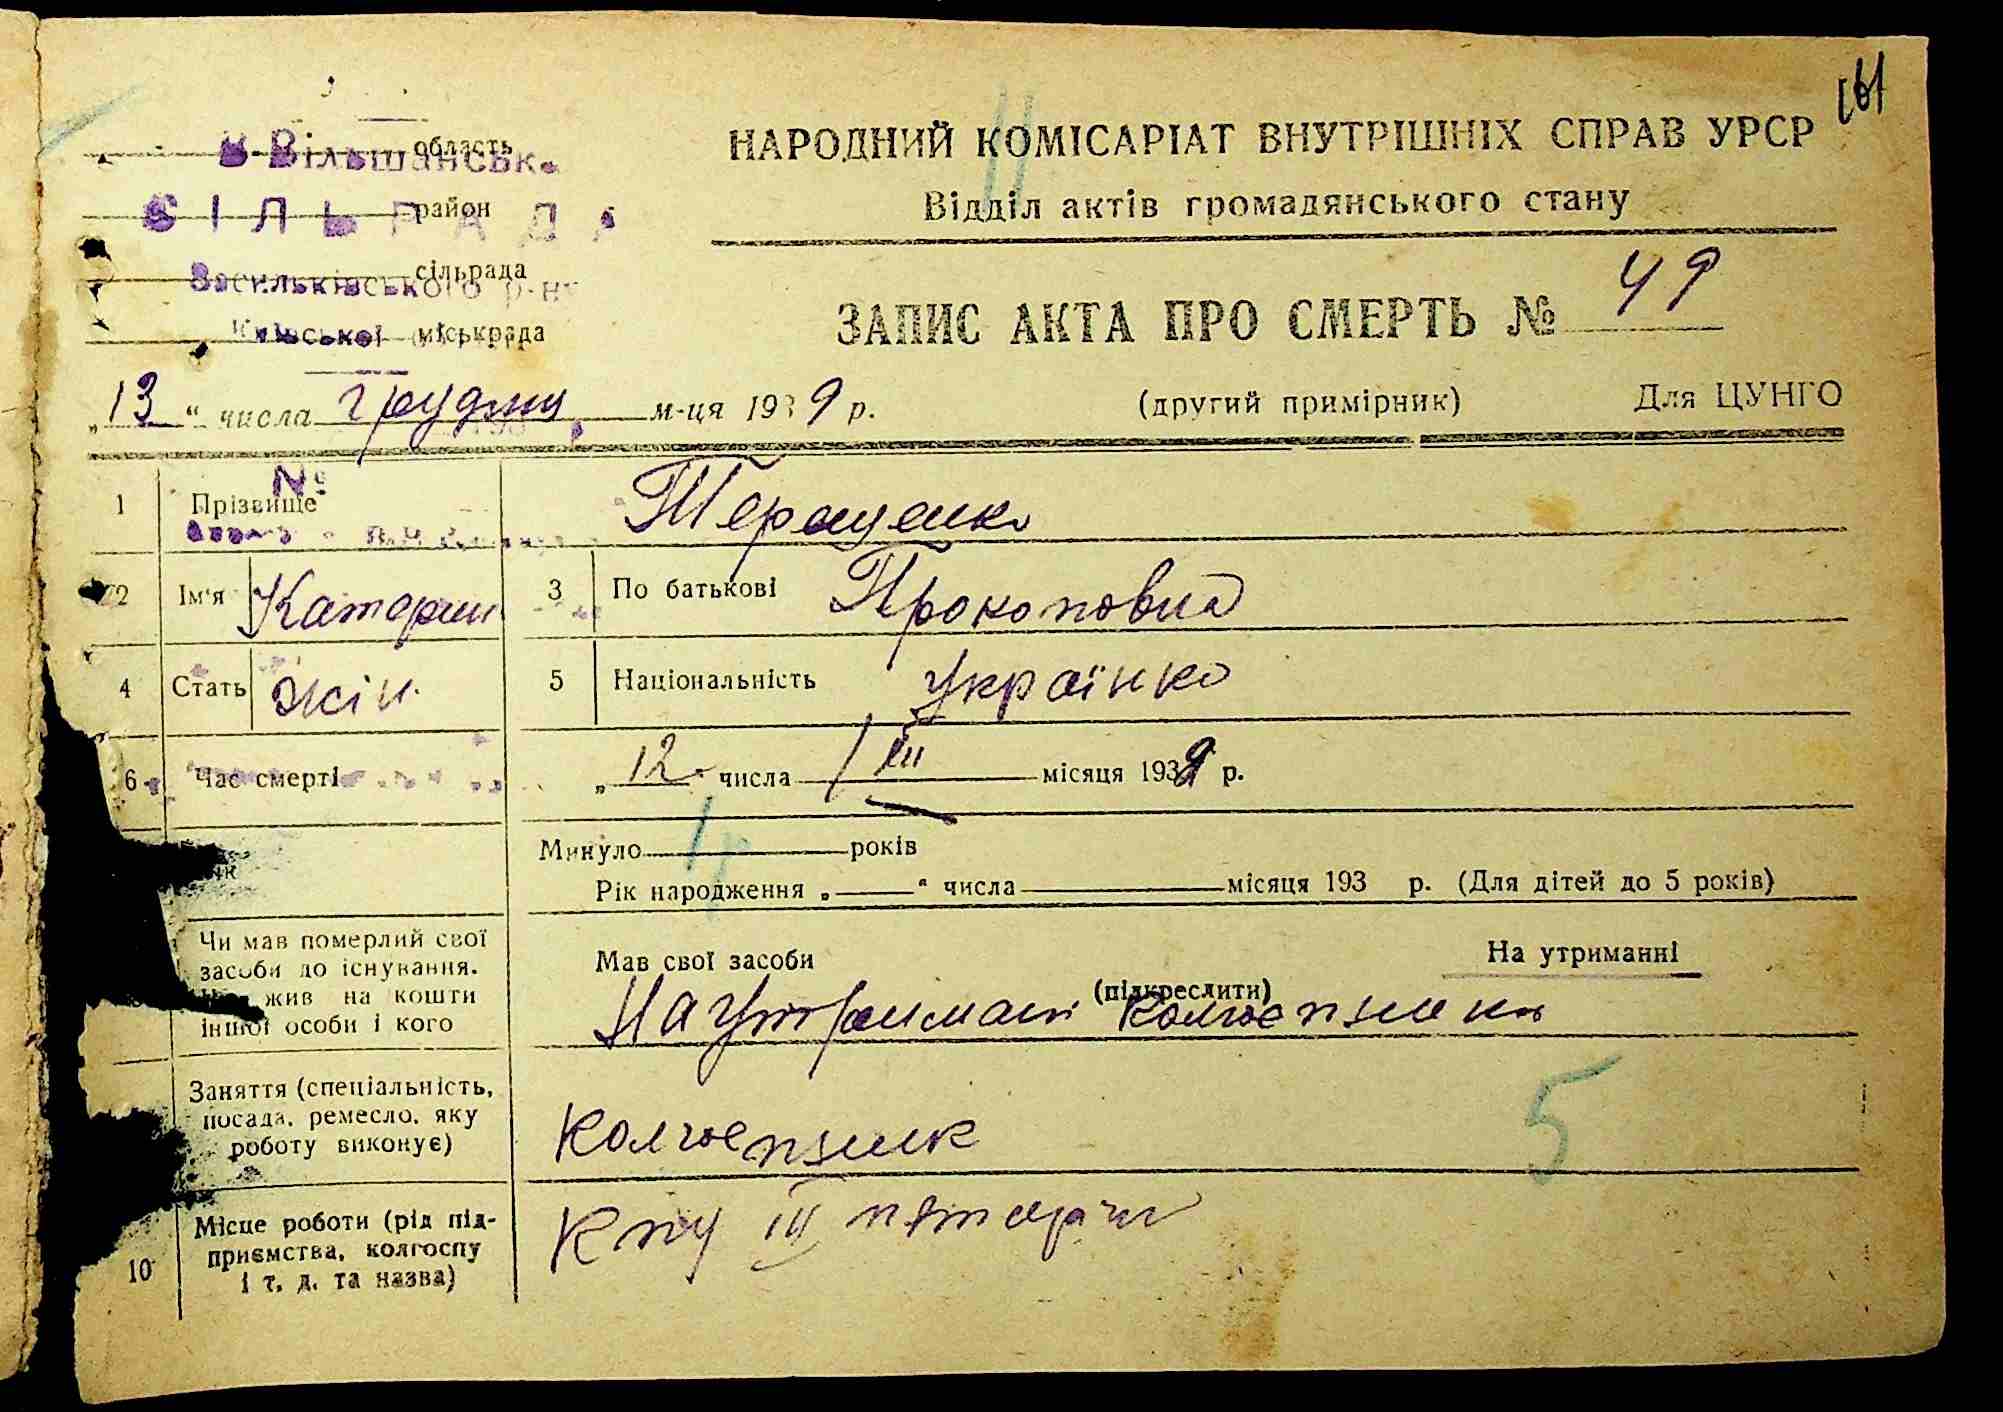 161
В-Вільшанськ.
область
СІЛЬРАДА
район
Васильківського р-ну
сільрада
Київської
міськрада
НАРОДНИЙ КОМІСАРІАТ ВНУТРІШНІХ СПРАВ УРСР
Відділ актів громадянського стану
ЗАПИС АКТА ПРО СМЕРТЬ № 49
„13“ числа грудня м-ця 1939 р. (другий примірник) Для ЦУНГО
№
1 Прізвище Терещенко
2 Ім'я Катерин 3 По батькові Прокоповна
4 Стать жін. 5 Національність Українка
6 Час смерті „12 числа XII місяця 1939 р.
Минуло 1 р років
Рік народження „ “ числа місяця 193 р. (Для дітей до 5 років)
Чи мав померлий свої
засоби до існування.
жив на кошти
іншої особи і кого
Мав свої засоби На утриманні
(підкреслити)
На утриманні колгоспника
Заняття (спеціальність,
посада, ремесло, яку
роботу виконує)
колгоспник
5
10 Місце роботи (рід під-
приємства, колгоспу
і т. д. та назва)
III пятирічки